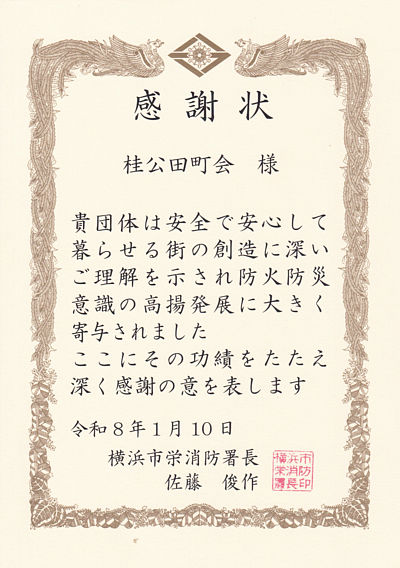 感謝状
桂公田町会 様
貴団体は安全で安心して
暮らせる街の創造に深い
ご理解を示され防火防災
意識の高揚発展に大きく
寄与されました
ここにその功績をたたえ
深く感謝の意を表します
令和8年1月10日
横浜市栄消防署長
佐藤 俊作
横浜市
栄消防
署長印